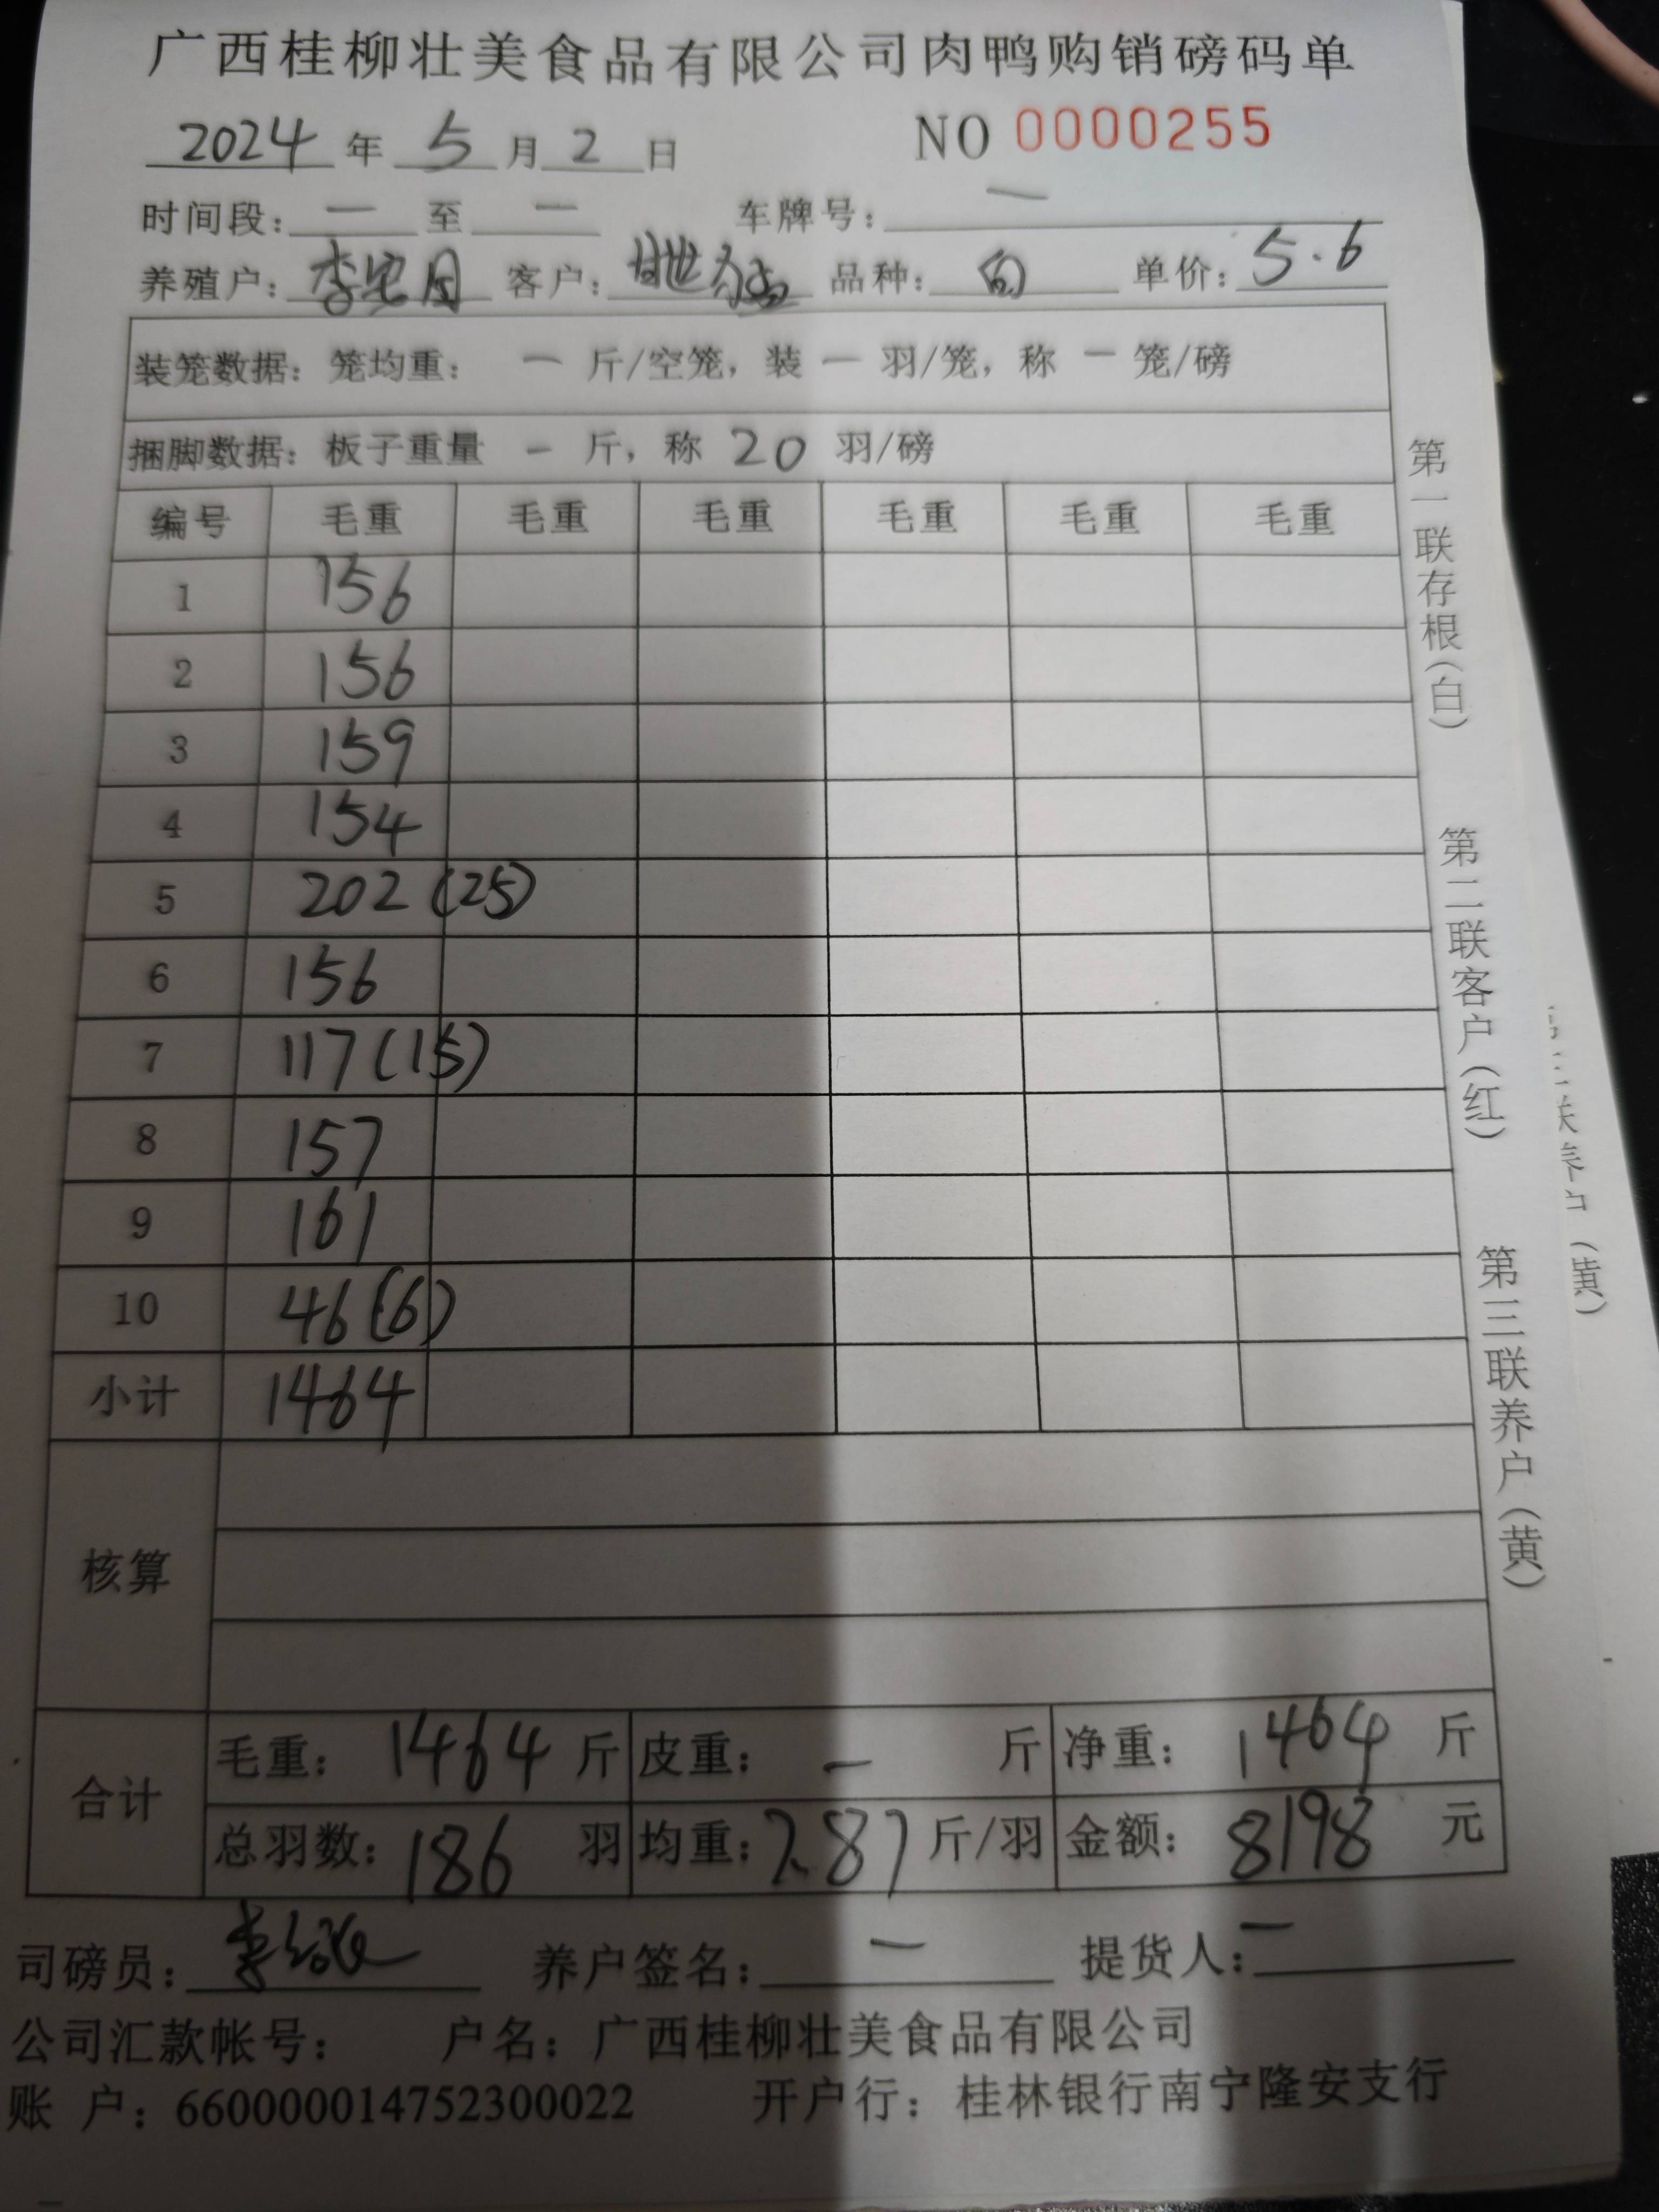 广西桂柳壮美食品有限公司肉鸭购销磅码单
2024 年 5 月 2 日 NO 0000255
时间段: 一 至 一 车牌号: 一
养殖户: 李 月 客户: 品种: 白 单价: 5.6
装笼数据: 笼均重: 一 斤/空笼, 装 一 羽/笼, 称 一 笼/磅
捆脚数据: 板子重量 - 斤, 称 20 羽/磅
编号 毛重 毛重 毛重 毛重 毛重 毛重
1 156
2 156
3 159
4 154
5 202 (25)
6 156
7 117 (15)
8 157
9 161
10 46 (6)
小计 1464
核算
合计 毛重: 1464 斤 皮重: 一 斤 净重: 1464 斤
总羽数: 186 羽 均重: 7.87 斤/羽 金额: 8198 元
司磅员: 李 养户签名: 一 提货人: 一
公司汇款帐号: 户名: 广西桂柳壮美食品有限公司
账 户: 660000014752300022 开户行: 桂林银行南宁隆安支行
第一联存根(白)
第二联客户(红)
第三联养户(黄)
(黄)